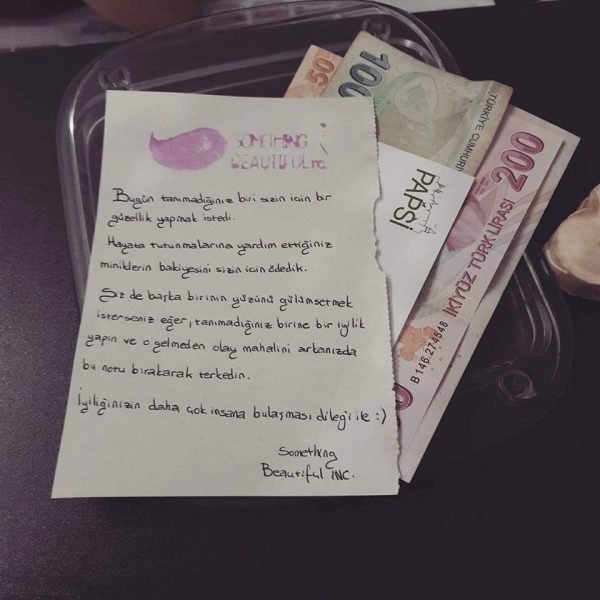 SOMETHING
BEAUTIFUL INC.
Bugün tanımadığınız biri sizin için bir
güzellik yapmak istedi.
Hayata tutunmalarına yardım ettiğiniz
miniklerin bakiyesini sizin için ödedik.
Siz de başka birinin yüzünü gülümsetmek
isterseniz eğer, tanımadığınız birine bir iyilik
yapın ve o gelmeden olay mahalini arkanızda
bu notu bırakarak terkedin.
İyiliğinizin daha çok insana bulaşması dileği ile :)
Something
Beautiful INC.
50
100
TÜRKİYE CUMHURİ
PAPSİ
200
İKİYÜZ TÜRK LİRASI
B 146 274548
0